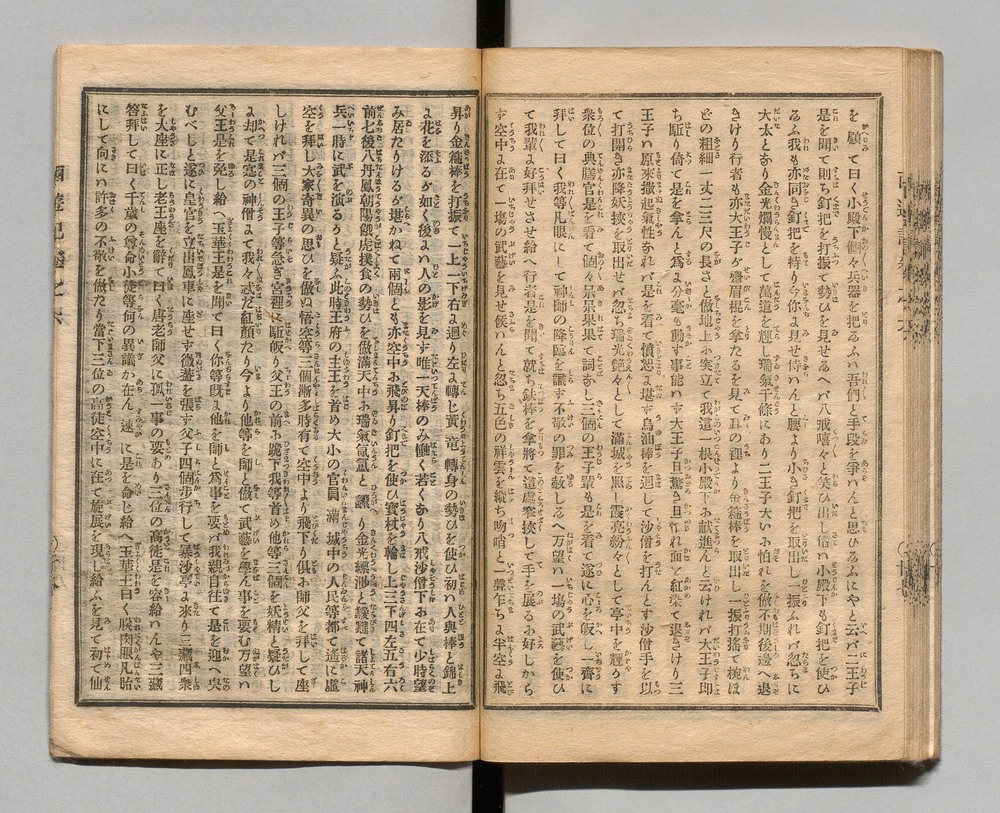 を顧て曰く小殿下個々兵器を把るふハ吾們と手段を爭ハんと思ひるふにやと云バ二王子
是を聞て則ち釘把を打振て勢ひを見せるへバ八戒嘻々と笑ひ出し恁ハ小殿下も釘把を使ひ
るふ我も亦同き釘把を持り今你よ見せ侍ハんと腰より小き釘把を取出し一振ふれバ忽ちに
大太とあり金光爛慢として萬道を輝し瑞氣千條にあり二王子大いお怕れを做不期後邊へ退
きけり行者も亦大王子が齋眉棍を拿たるを見て耳の裡より金箍棒を取出し一振打搖て椀ほ
どの粗細一丈二三尺の長さと做地上お突立て我這一根小殿下お献進んと云けれバ大王子即
ち駈り倚て是を拿んと爲よ分毫も動す事能ハず大王子且驚き且怕れ面を紅染て退きけり三
王子ハ原來撒起氣性あれバ是を看て憤恕よ堪ず烏油棒を迴して沙僧を打んとす沙僧手を以
て打開き亦降妖挾を取出せバ忽ち瑞光艶々として滿城を照し霞亮紛々として亭中を輝うす
衆位の典膳官是を看て個々呆呆果て詞あし三個の王子輩も是を看て遂に心を皈し一齊に
拜して曰く我等凡眼にして神師の降臨を識ず不敬の罪を赦しるへ万望ハ一塲の武藝を使ひ
て我輩よ好拜せさせ給へ行者是を聞て就ち鉄棒を拿將て這處窄狹して手を展るお好しから
ず空中よ在て一塲の武藝を見せ候ハんと忽ち五色の祥雲を縱ち吻哨と一聲乍ちよ半空よ飛
昇り金箍棒を打振て一上一下右よ迴り左よ轉し黃竜轉身の勢ひを使ひ初ハ人與棒と錦上
よ花を添るが如く後よハ人の影を見ず唯一天棒のみ働く若くあり八戒沙僧下お在て少時望
み居たりけるが堪かねて兩個とも亦空中お飛昇り釘把を使ひ寳杖を輪し上三下四左五右六
前七後八丹鳳朝陽餓虎撲食の勢ひを做滿天中お瑞氣氤氳と靉り金光縹渺と纓繞し諸天神
兵一時に武を演るうと疑ふ此時王府の主王を首め大小の官員滿城中の人民等都て遙に虚
空を拜し大家奇異の思ひを做ぬ悟空等三個漸多時有て空中より飛下り俱お師父を拜して座
しけれバ三個の王子等急ぎ宮裡に駈皈り父王の前お跪下我等首め他等三個を妖精と疑ひし
よ却て是寔の神僧よて我々忒だ紅顏たり今より他等を師と做て武藝を學ん事を要む万望ハ
父王是を免し給へ玉華王是を聞て曰く你等既よ他を師と爲事を要バ我親自往て是を迎へ央
むべしと遂に皇宮を立出鳳車に座せず微盖を張ず父子四個步行して暴沙亭よ來り三藏同衆
を大座に正し老王座を辭て曰く唐老師父に孤一事の要あり三位の高徒是を容給ハんや三藏
答拜して曰く千歲の尊命小徒等何の異議か在ん速に是を命じ給へ玉華王曰く朘肉眼凡胎
にして向にハ許多の不敬を做たり當下三位の高徒空中に在て施展を現し給ふを見て初て仙